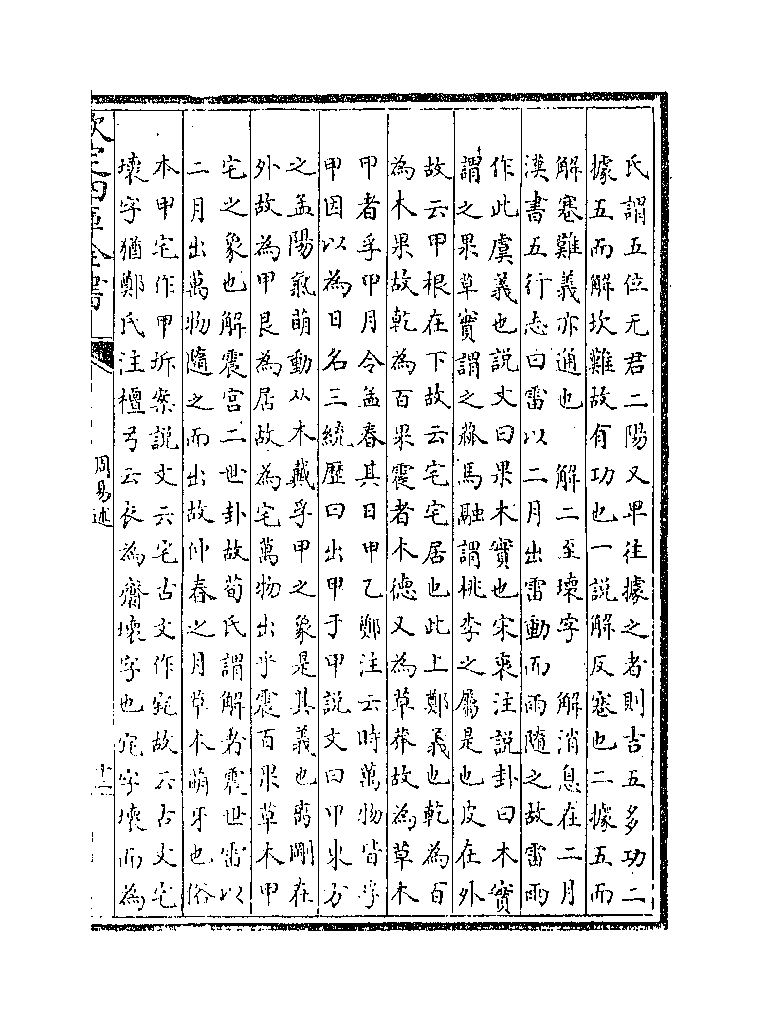 氏謂五位无君二陽又卑往據之者則吉五多功二
據五而解坎難故有功也一說解反蹇也二據五而
解蹇難義亦通也　解二至壞字　解消息在二月
漢書五行志曰雷以二月出雷動而雨隨之故雷雨
作此虞義也說文曰果木實也宋衷注說卦曰木實
謂之果草實謂之蓏馬融謂桃李之屬是也皮在外
故云甲根在下故云宅宅居也此上鄭義也乾為百
為木果故乾為百果震者木德又為草莽故為草木
甲者孚甲月令孟春其日甲乙鄭注云時萬物皆孚
甲因以為日名三統歷曰出甲于甲說文曰甲東方
之孟陽氣萌動从木戴孚甲之象是其義也離剛在
外故為甲艮為居故為宅萬物出乎震百果草木甲
宅之象也解震宮二世卦故荀氏謂解者震世雷以
二月出萬物隨之而出故仲春之月草木萌牙也俗
本甲宅作甲坼案說文云宅古文作㡯故云古文宅
壞字猶鄭氏注檀弓云衣為齋壞字也㡯字壞而為
欽定四庫全書
周易述
十二